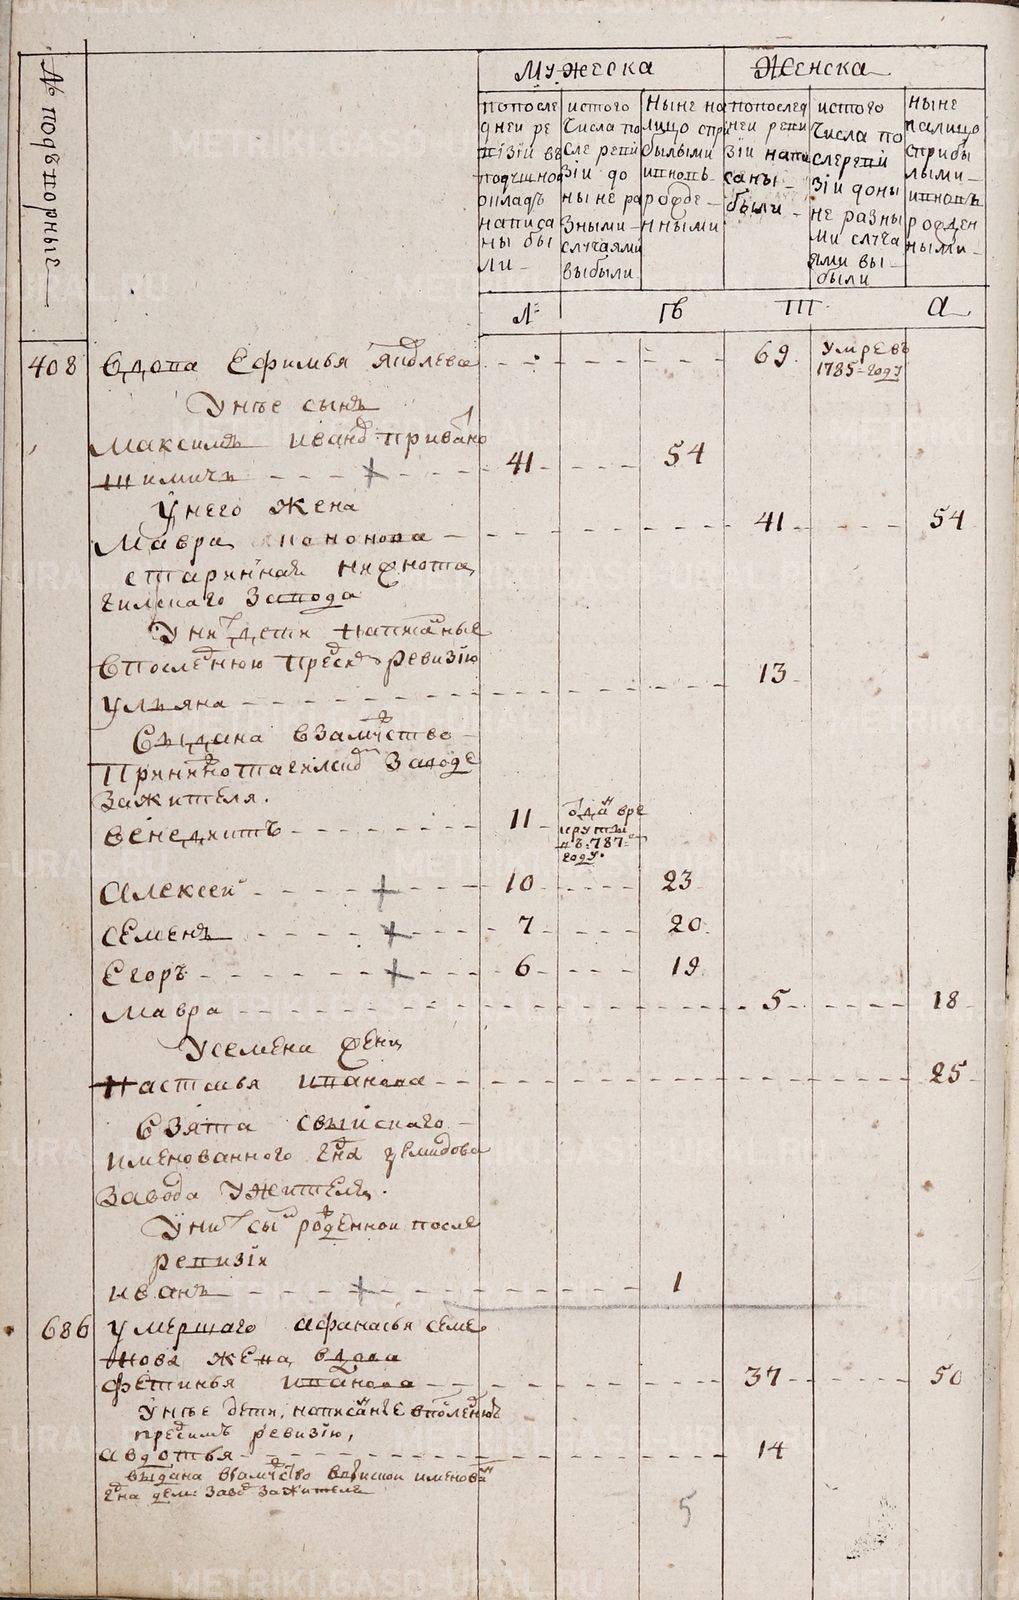 № подворные
Мужеска
Женска
попосле
дней ре
визии въ
подушной
окладъ
написа
ны бы
ли
истого
числа по
сле реви
зiи до
ныне ра
зными
случаями
выбыли
Ныне на
лицо спри
былыми
ивновь
рожде
нными
попослед
ней реви
зiи напи
саны
были
истого
числа по
слереви
зiи доны
не разны
ми случа
ями вы
были
ныне
налицо
сприбы
лыми
ивновь
рожден
ными
408 вдова Ефимья Яковлева 69 умре въ
1785 году
Унее сынъ
Максимъ Иванов
41 54
Унего жена
41 54
Мавра
старинная нижнота
гилскаго завода
Уних дети написаные
впоследнюю пред ревизiю
13
ульяна
Выдана взамужство
Принижнотагилском Заводе
зажителя.
Венедиктъ 11 отдан вре
круты
въ 787
году.
Алексей 10 23
Семенъ 7 20
Егоръ 6 19
Мавра 5 18
Усемена жена
Настасья Иванова 25
Взята свыйскаго
имянованного г-на демидова
Завода Ужителя.
Уних сын рожденной после
ревизiи
Иванъ 1
686 умершаго Афанасья Семе
нова жена вдова
Фетинья Иванова 37 50
Унее дети, написанные впоследнюю
пред симъ ревизiю,
Авдотья 14
выдана взамужство
г-на дем: заво зажителя
5